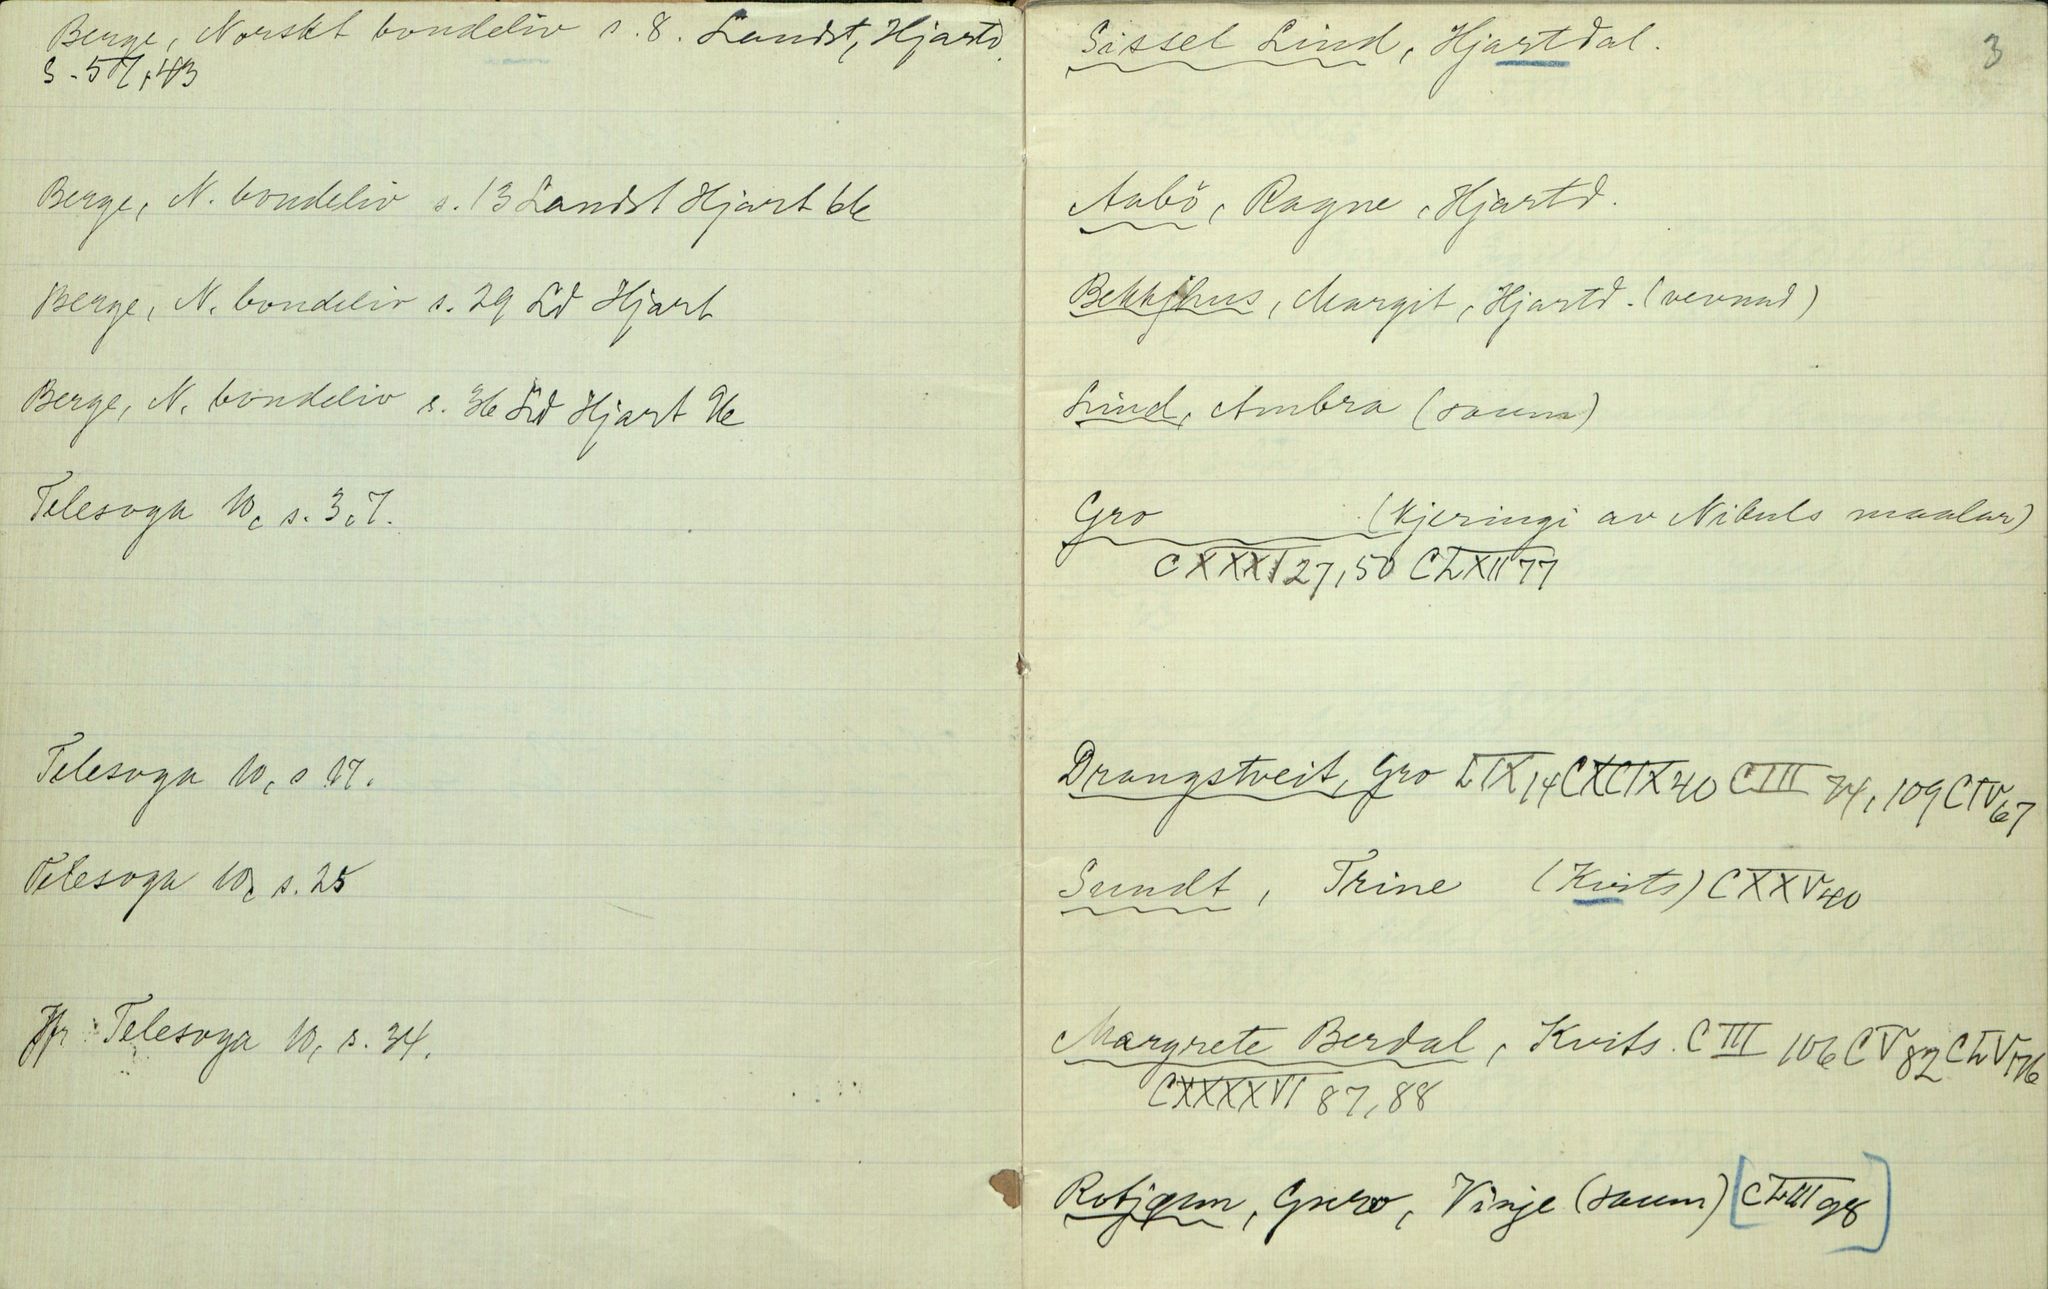 Berge, Norskt bondeliv s. 8. Landst, Hjartd.
S. 57, 43
Berge, N. bondeliv s. 13 Landst Hjart 66
Berge, N. bondeliv s. 29 Ld Hjart
Berge, N. bondeliv s. 36 Ld Hjart 76
Telesoga 10, s. 3, 7.
Telesoga 10, s 17.
Telesoga 10, s. 25
Jfr Telesoga 10, s. 34.
3
Sissel Lind, Hjartdal.
Aabö, Ragne, Hjartd.
Bekkjhus, Margit, Hjartd. (vevnad)
Lind, Ambra (saum)
Gro (kjeringi av Nikuls maalar)
CXXXI 27, 50 CLXII 77
Drangstveit, Gro LIX 14 CXCIX 40 CIII 74, 109 CIV 67
Sundt, Trine (Kvits) CXXV 40
Margrete Berdal, Kvits. CIII 106 CV 82 CLV 176
CXXXXVI 87, 88
Rotjønn, Guro, Vinje (saum) [CLIII 98]